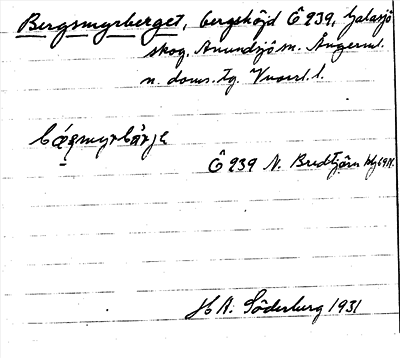 Bergsmyrberget, bergshöjd Ö 239, Galasjö
skog, Anundsjö sn. Ångerml.
n. doms. tg. Vnorrl. l.
bæ̀rgmyrbærjə
Ö 239 N. Bredtjärn
H A. Söderberg 1931